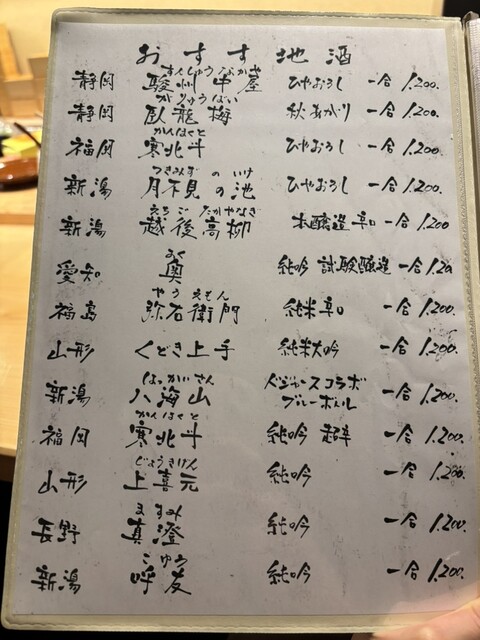 おすすめ地酒
すんしゅうなかや
静岡 駿州中屋 ひやおろし 一合 1,200.
がりゅうばい
静岡 臥龍梅 秋あがり 一合 1,200.
かんほくと
福岡 寒北斗 ひやおろし 一合 1,200.
つきみずのいけ
新潟 月不見の池 ひやおろし 一合 1,200.
えちごたかやなぎ
新潟 越後高柳 本醸造 辛口 一合 1,200
おく
愛知 奥 純吟 試験醸造 一合 1,200
やうえもん
福島 弥右衛門 純米辛口 一合 1,200.
山形 くどき上手 純米大吟 一合 1,200.
はっかいさん
新潟 八海山 ドジャースコラボ 一合 1,200.
ブルーボトル
かんほくと
福岡 寒北斗 純吟 超辛 一合 1,200.
じょうきげん
山形 上喜元 純吟 一合 1,200.
ますみ
長野 真澄 純吟 一合 1,200.
こゆう
新潟 呼友 純吟 一合 1,200.